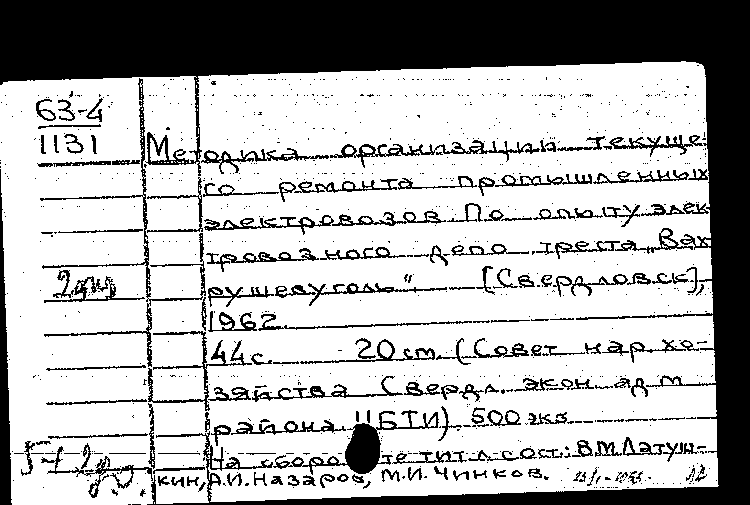 63-4
1131
Методика организации текуще-
го ремонта промышленных
электровозов. По опыту элек-
тровозного депо треста „Вах
рушевуголь". [Свердловск],
2 экз
1962.
44 с. 20 см. (Совет нар. хо-
зяйства Свердл. экон. адм.
района. ЦБТИ) 500 экз.
На оборо те тит. л. сост.: В.М. Латуш-
кин, А.И. Назаров, М.И. Чинков.